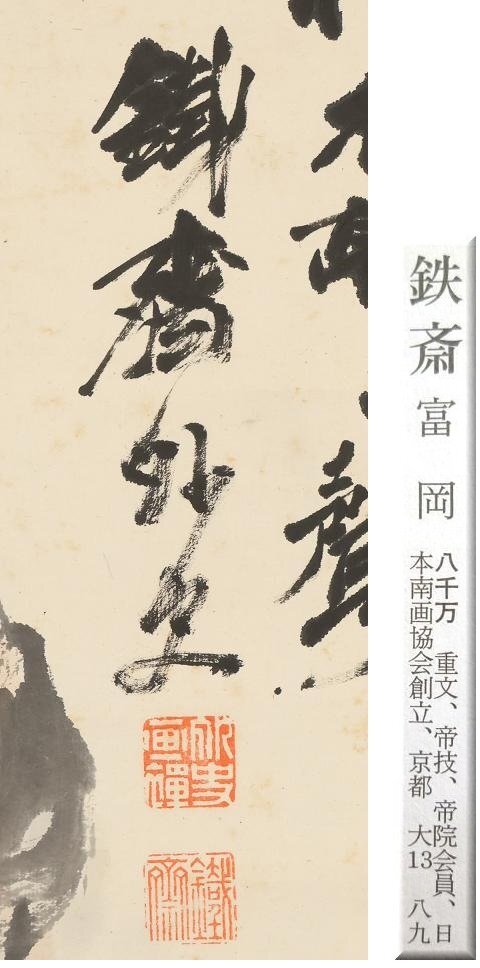 聲
鐵齋外史
鐵齋
鉄斎 富岡
八千万 重文、帝技、帝院会員、日
本南画協会創立、京都 大13 八九